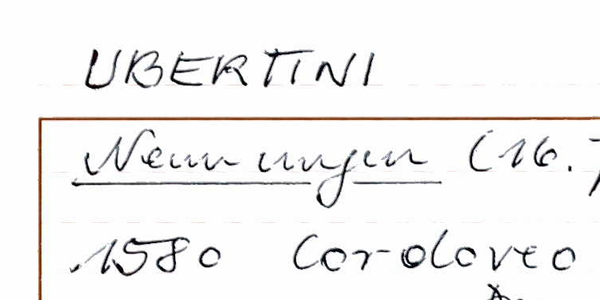 UBERTINI
Nennungen (16.
1580 Cordoveo